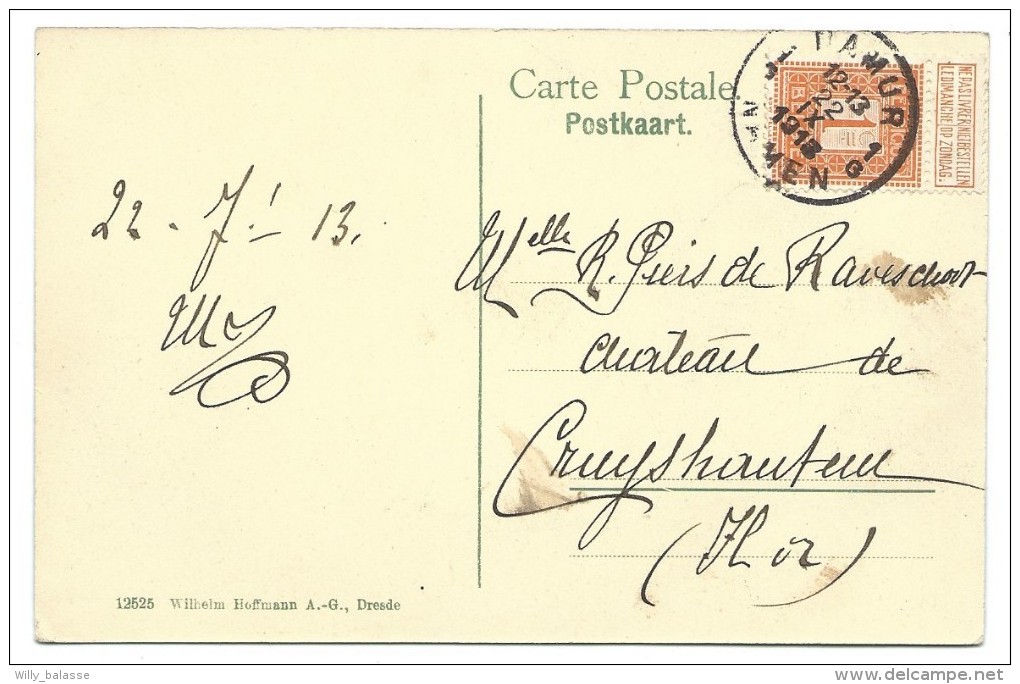 Carte Postale
Postkaart.
NAMUR 1
12-13
22
IX
1913
NAMEN G
1
NE PAS LIVRER NIET BESTELLEN
LE DIMANCHE OP ZONDAG.
22 - 7! - 13.
Melle R. Piers de Raveschoot
château de
Cruyshautem
12525 Wilhelm Hoffmann A.-G., Dresde
Willy_balasse
delcampe.net